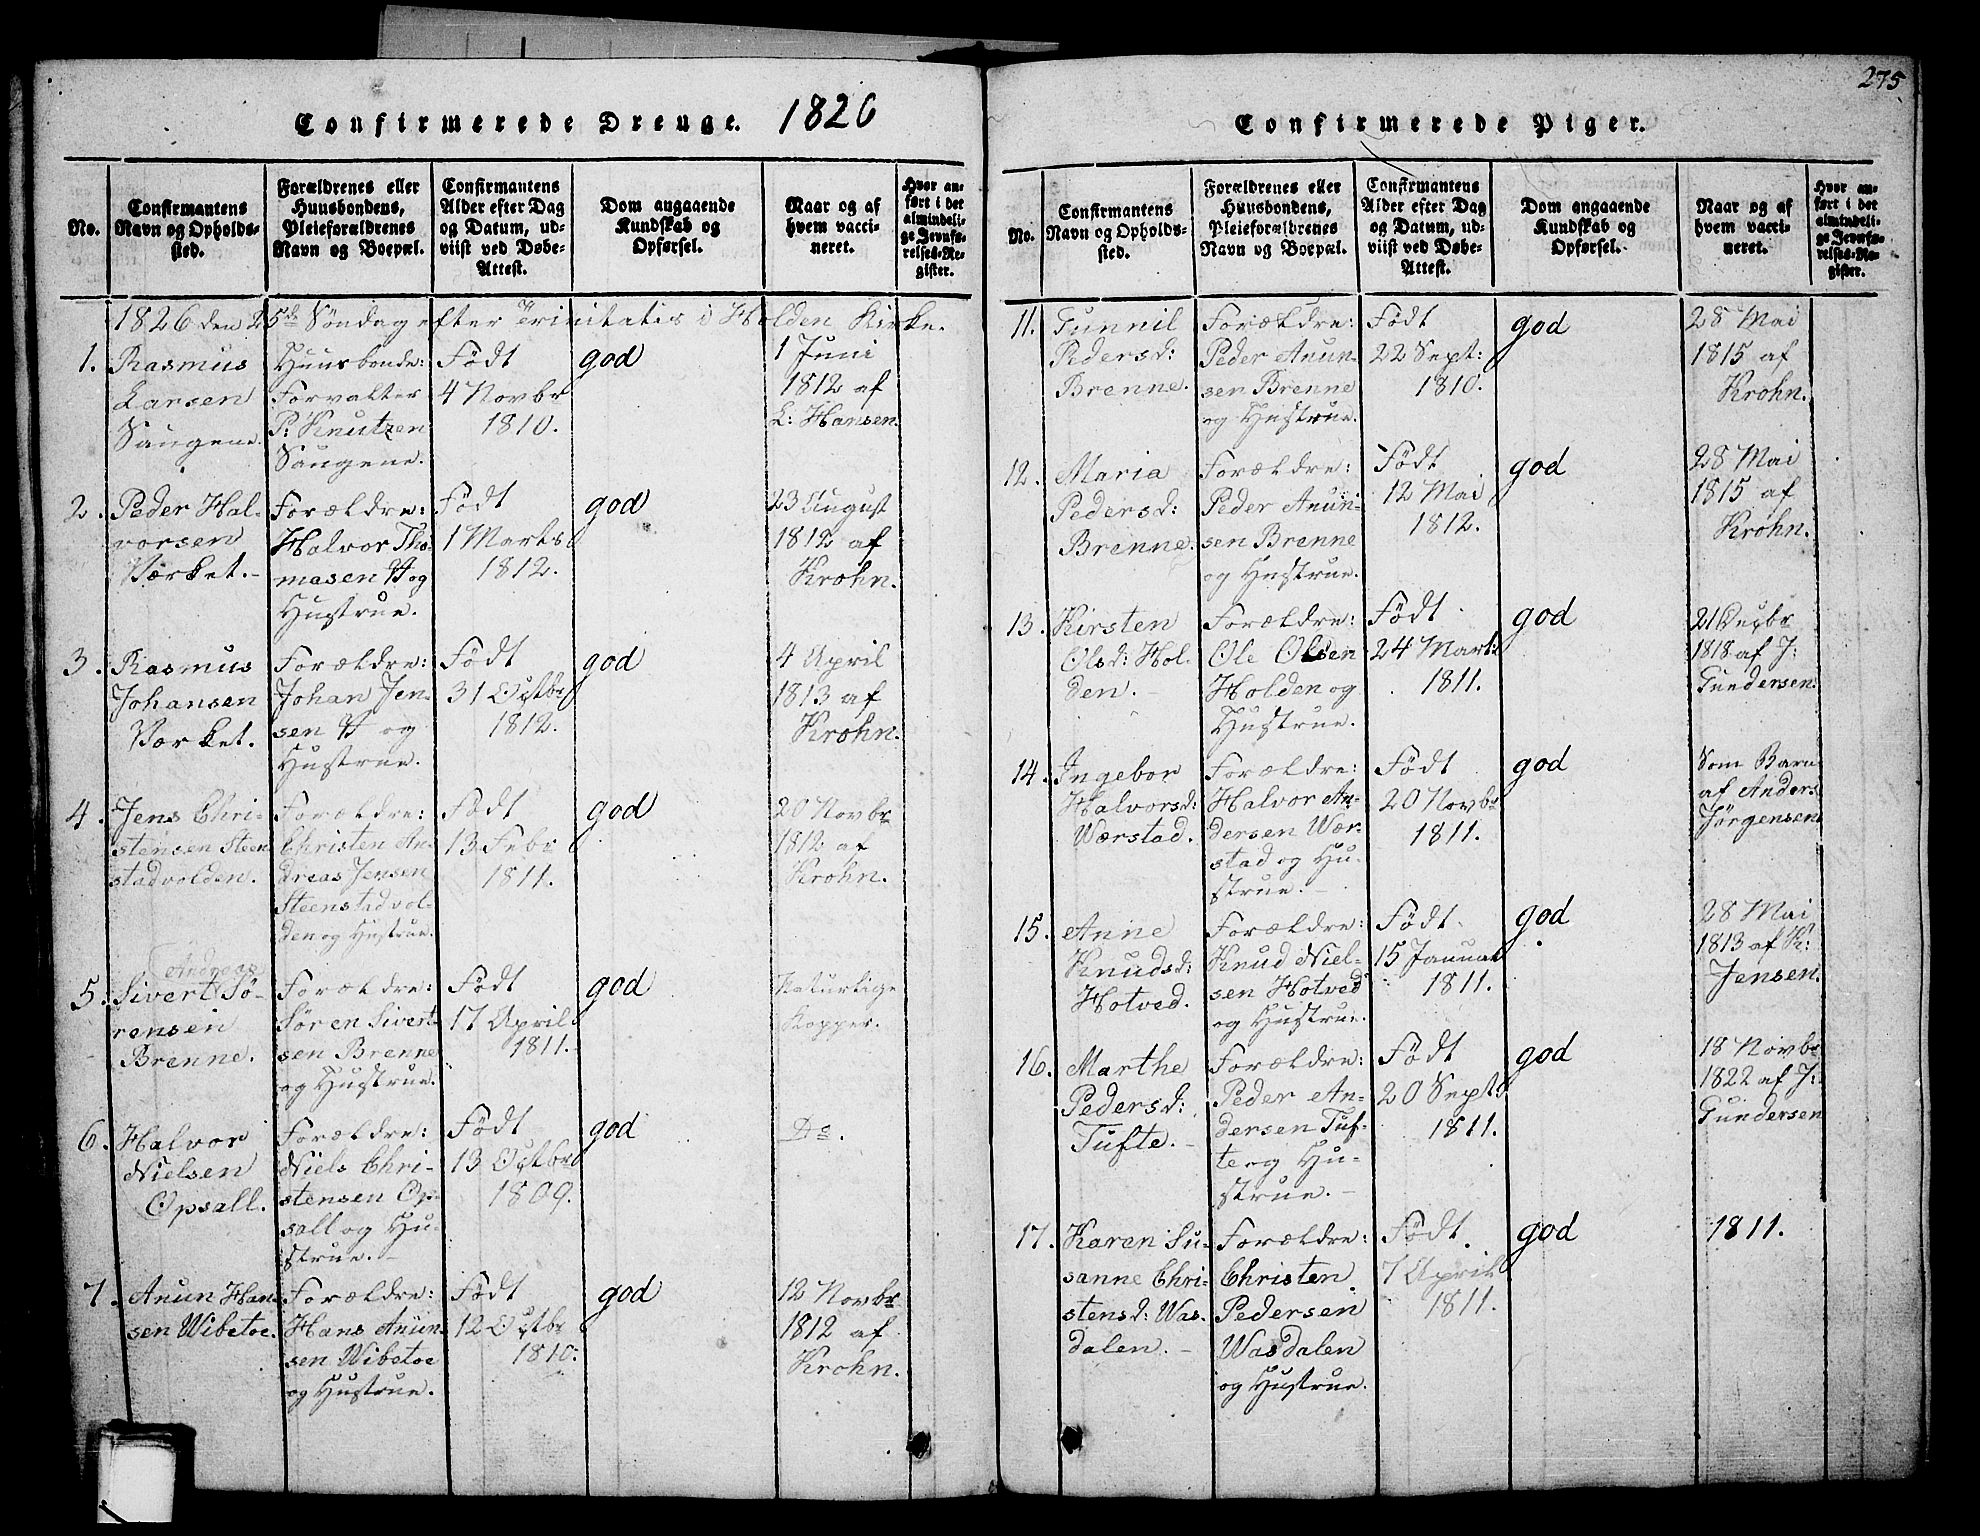 Confirmerede Drenge. 1826
No.
Confirmantens
Navn og Opholds-
sted.
Forældrenes eller
Huusbondens,
Pleieforældrenes
Navn og Boepæl.
Confirmantens
Alder efter Dag
og Datum, ud-
viist ved Døbe-
Attest.
Dom angaaende
Kundskab og
Opførsel.
Naar og af
hvem vacci-
neret.
Hvor an-
ført i det
almindeli-
ge Jevnfø-
relses-Re-
gister.
1826 den 25de Søndag efter Trinitatis i Holden Kirke.
1.
Rasmus
Larsen
Saugene.
Huusbonde:
Forvalter
P: Knutzen
Saugene.
Født
4 Novbr
1810.
god
1 Juni
1812 af
L: Hansen.
2.
Peder Hal-
vorsen
Værket.-
Forældre:
Halvor Tho-
masen og
Hustrue.
Født
1 Marts
1812.
god
23 August
1812 af
Krohn.
3.
Rasmus
Johansen
Værket.
Forældre:
Johan Jen-
sen og
Hustrue.
Født
31 Octbr
1812.
god
4 April
1813 af
Krohn.
4.
Jens Chri-
stensen Steen-
stadvolden.
Forældre:
Christen An-
dreas Jensen
Steenstadvol-
den og Hustrue.
Født
13 Febr
1811.
god
20 Novbr
1812 af
Krohn.
5.
Andreas
Sivert Sö-
rensen
Brenne.
Forældre:
Sören Sivert-
sen Brenne
og Hustrue.
Født
17 April
1811.
god
Naturlige
Kopper.
6.
Halvor
Nielsen
Opsall.
Forældre:
Niels Chri-
stensen Op-
sall og Hu-
strue.-
Født
13 Octbr
1809.
god
Do.
7.
Anun Han-
sen Wibetoe.
Forældre:
Hans Anun-
sen Wibetoe
og Hustrue.
Født
12 Octbr
1810:
god
12 Novbr
1812 af
Krohn.
275
Confirmerede Piger.
No.
Confirmantens
Navn og Opholds-
sted.
Forældrenes eller
Huusbondens,
Pleieforældrenes
Navn og Boepæl.
Confirmantens
Alder efter Dag
og Datum, ud-
viist ved Døbe-
Attest.
Dom angaaende
Kundskab og
Opførsel.
Naar og af
hvem vacci-
neret.
Hvor an-
ført i det
almindeli-
ge Jevnfø-
relses-Re-
gister.
11.
Gunnil
Pedersd:
Brenne.
Forældre:
Peder Anun-
sen Brenne
og Hustrue.
Født
22 Sept:
1810.
god
28 Mai
1815 af
Krohn.
12.
Maria
Pedersd:
Brenne.
Forældre:
Peder Anun-
sen Brenne
og Hustrue.
Født
12 Mai
1812.
god
28 Mai
1815 af
Krohn.
13.
Kirsten
Olsd: Hol-
den.
Forældre:
Ole Olsen
Holden og
Hustrue.
Født
24 Mart:
1811.
god
21 Decbr
1818 af J:
Gundersen.
14.
Ingebor
Halvorsd:
Wærstad.
Forældre:
Halvor An-
dersen Wær-
stad og Hu-
strue.-
Født
20 Novbr
1811.
god
Som Barn
af Anders
Jørgensen
15.
Anne
Knudsd:
Hotved.
Forældre:
Knud Niel-
sen Hotved
og Hustrue.
Født
15 Januar
1811.
god
28 Mai
1813 af K:
Jensen.
16.
Marthe
Pedersd:
Tufte.-
Forældre:
Peder An-
dersen Tuf-
te og Hu-
strue.-
Født
20 Sept:
1811.
god
18 Novbr
1822 af J:
Gundersen
17.
Karen Su-
sanne Chri-
stensd: Was-
dalen.-
Forældre:
Christen
Pedersen
Wasdalen
og Hustrue.
Født
7 April
1811.
god
1811.